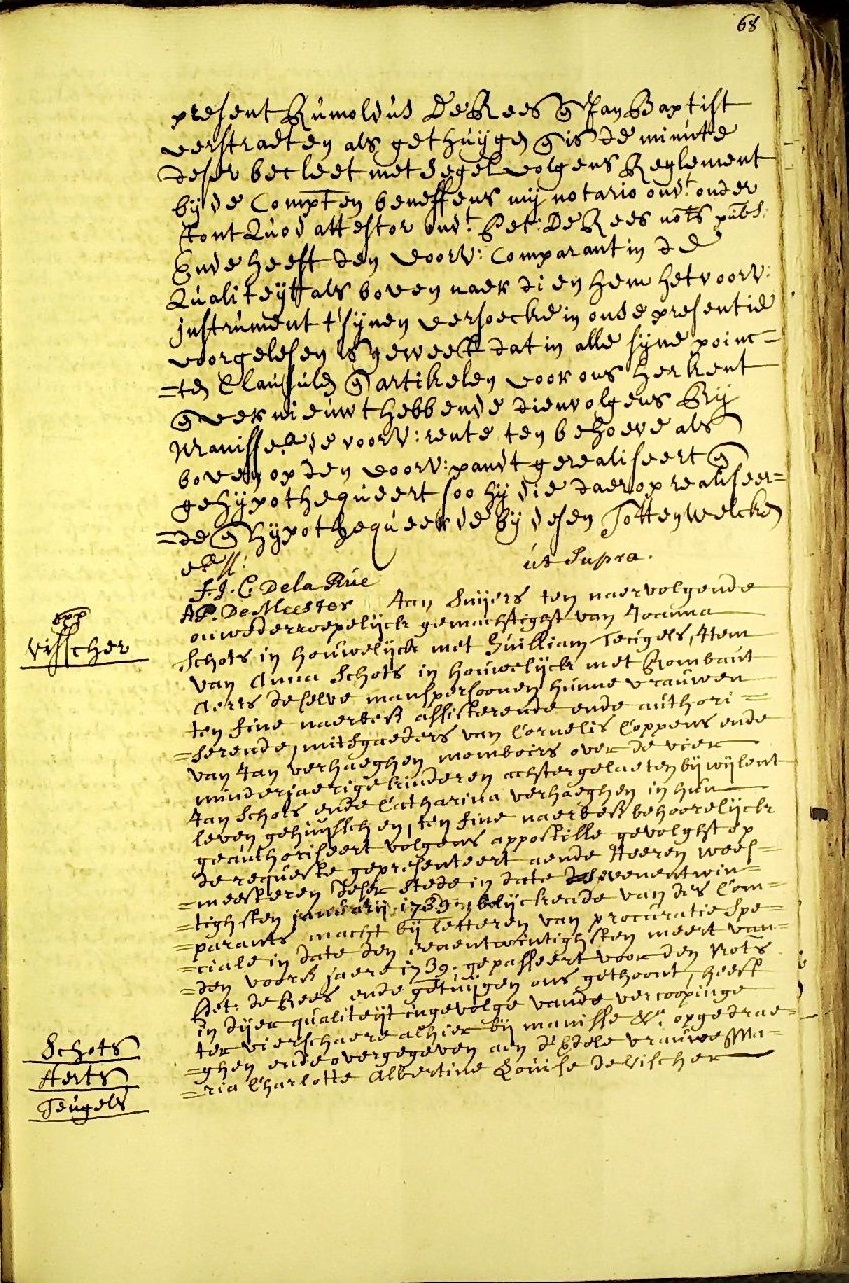 68
present Rumoldus De Rees en Jan Baptist
verstraeten als gethuijgen en is de minute
deser becleet met segel volgens Reglement
bij de Compten beneffens mij notario ondt onder
stont Quod attestor ondt Pet: De Rees nots pubs:
Ende heeft den voorv: Comparant in de
Qualiteijt als boven naer dien hem het voorv:
Instrument t'sijnen versoecke in onse presentie
voorgelesen is geweest dat in alle sijne poinc=
=ten Clausulen en artikelen voor ons herkent
en vernieuwt hebbende dienvolgens Bij
Manisse de voorv: rente ten behoeve als
boven op den voorv: pandt gerealiseert en
gehypothequeert soo hij die daerop realiseer=
=de en hypothequeerde bij desen Tot tenwelcken
ut supra.
F.J.C. De la Rue
De Meester
Jan Suijers ten naervolgende
opp
Visscher
onwederroepelijck gemachtight van Joanna
Schots in houwelijck met Guilliam Teugels, Item
van Anna Schots in houwelijck met Rombaut
Aerts deselve manspersoonen hunne vrauwen
ten fine naerbest assisterende ende authori=
=serende, mitsgaeders van Cornelis Coppens ende
van Jan verhaeghen momboirs over de vier
minderjaerige kinderen achtergelaeten bij wijlent
Jan Schots ende Catharina verhaeghen in hun
leven gehuysschen, ten fine naerbest behoorelijck
geauthoriseert volgens appostille gevolght op
de requeste gepresenteert aende Heeren weес=
=meesteren deser stede in date sevenentwin=
=tighsten januarij 1739 en blijckende van des Com=
=parants macht bij letteren van procuratie Spe=
=ciale in date den eenentwintighsten meert van=
=den voors jaere 1739, gepasseert voor den Nots
Pet: de Rees ende getuijgen ons gethoont, heeft
in dijer qualiteijt ingevolge vande vercoopinge
ter vierschaere alhier bij manisse &a opgedrae=
=ghen ende overgegeven aen d'Edele vrauwe Ma=
=ria Charlotte Albertine Louise de Visscher
Schots
Aerts
Teugels